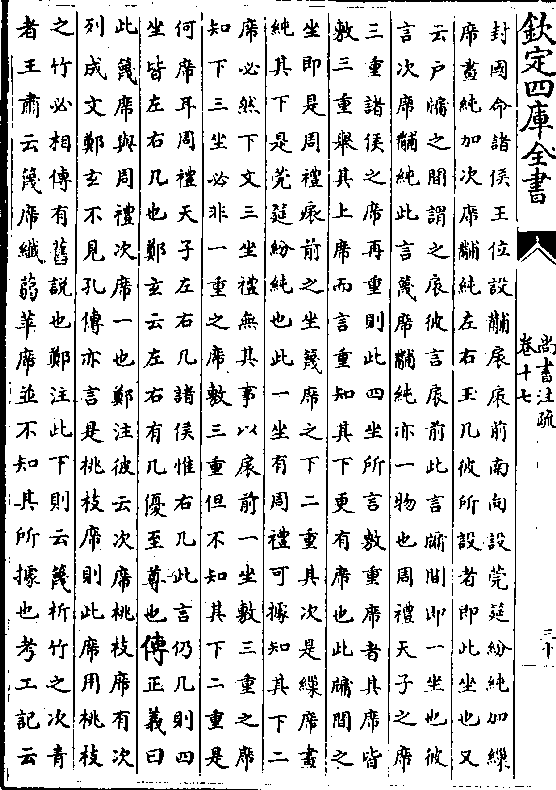 欽定四庫全書
尚書注疏
卷十七
三十
封國命諸侯王位設黼扆扆前南向設莞筵紛純加繅
席畫純加次席黼純左右玉几彼所設者即此坐也又
云戶牖之間謂之扆彼言扆前此言牖間即一坐也彼
言次席黼純此言篾席黼純亦一物也周禮天子之席
三重諸侯之席再重則此四坐所言敷重席者其席皆
敷三重舉其上席而言重知其下更有席也此牖間之
坐即是周禮扆前之坐篾席之下二重其次是繅席畫
純其下是莞筵紛純也此一坐有周禮可據知其下二
席必然下文三坐禮無其事以扆前一坐敷三重之席
知下三坐必非一重之席敷三重但不知其下二重是
何席耳周禮天子左右几諸侯惟右几此言仍几則四
坐皆左右几也鄭玄云左右有几優至尊也傳正義曰
此篾席與周禮次席一也鄭注彼云次席桃枝席有次
列成文鄭玄不見孔傳亦言是桃枝席則此席用桃枝
之竹必相傳有舊說也鄭注此下則云篾析竹之次青
者王肅云篾席纖蒻苹席並不知其所據也考工記云